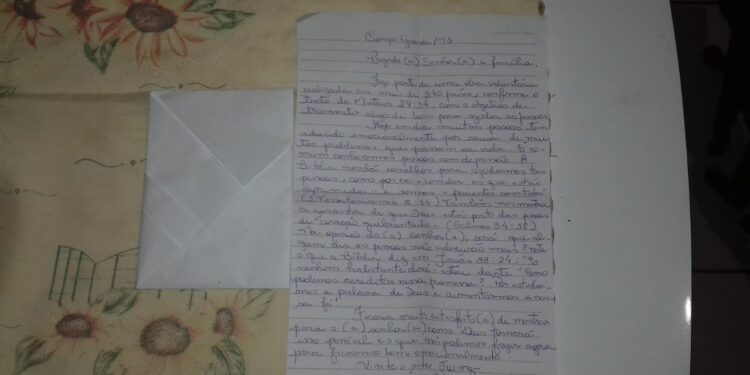 Campo Grande/MS
Prezado (a) Senhor(a) e família,
Faço parte de uma obra voluntária
realizada em mais de 240 países, conforme o
texto de Mateus 24:14, com o objetivo de
transmitir algo de bom para ajudar as pessoas
Hoje em dia muitas pessoas tem
adoecido emocionalmente por causa de mui-
tos problemas que passam na vida. É co-
mum conhecermos pessoas com depressão. A
Bíblia nos dá conselhos para ajudarmos tais
pessoas, como por ex: consolar os que estão
deprimidos e sermos pacientes com todos
(1 Tessalonicenses 5:14) Também nos mostra
a garantia de que Deus está perto das pessoas
de "coração quebrantado" (Salmos 34:18)
Na opinião do (a) Senhor(a), será que al-
gum dia as pessoas não adoecerão mais? Note
o que a Bíblia diz em Isaías 33:24: "E
nenhum habitante dirá: estou doente" Como
podemos acreditar nessa promessa? Por estudar-
mos a palavra de Deus e aumentarmos a nos-
sa fé!
Ficaria muito satisfeito(a) de mostrar
para o (a) senhor(a) como Deus tornará
isso possível e o que nós podemos fazer agora
para ficarmos bem emocionalmente.
Visite o site, jw.org